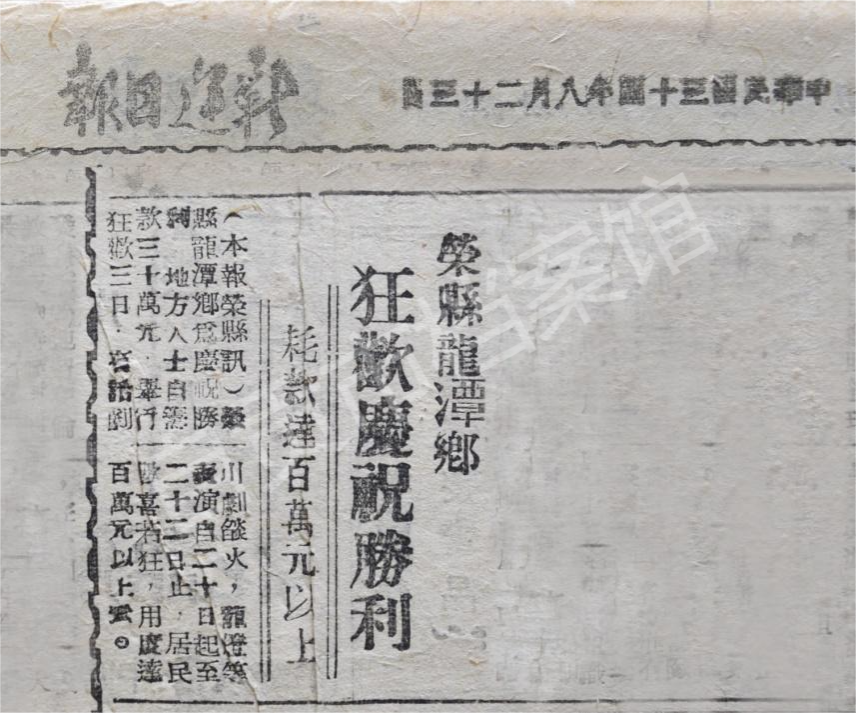 新運日報
中華民國三十四年八月二十三日
榮縣龍潭鄉
狂歡慶祝勝利
耗款達百萬元以上
（本報榮縣訊）榮
縣龍潭鄉爲慶祝勝
利 地方人士自籌
款三十萬元，舉行
狂歡三日，有話劇
川劇燄火，龍燈等
表演自二十日起至
二十二日止，居民
歡喜若狂，用度達
百萬元以上云。
档案馆